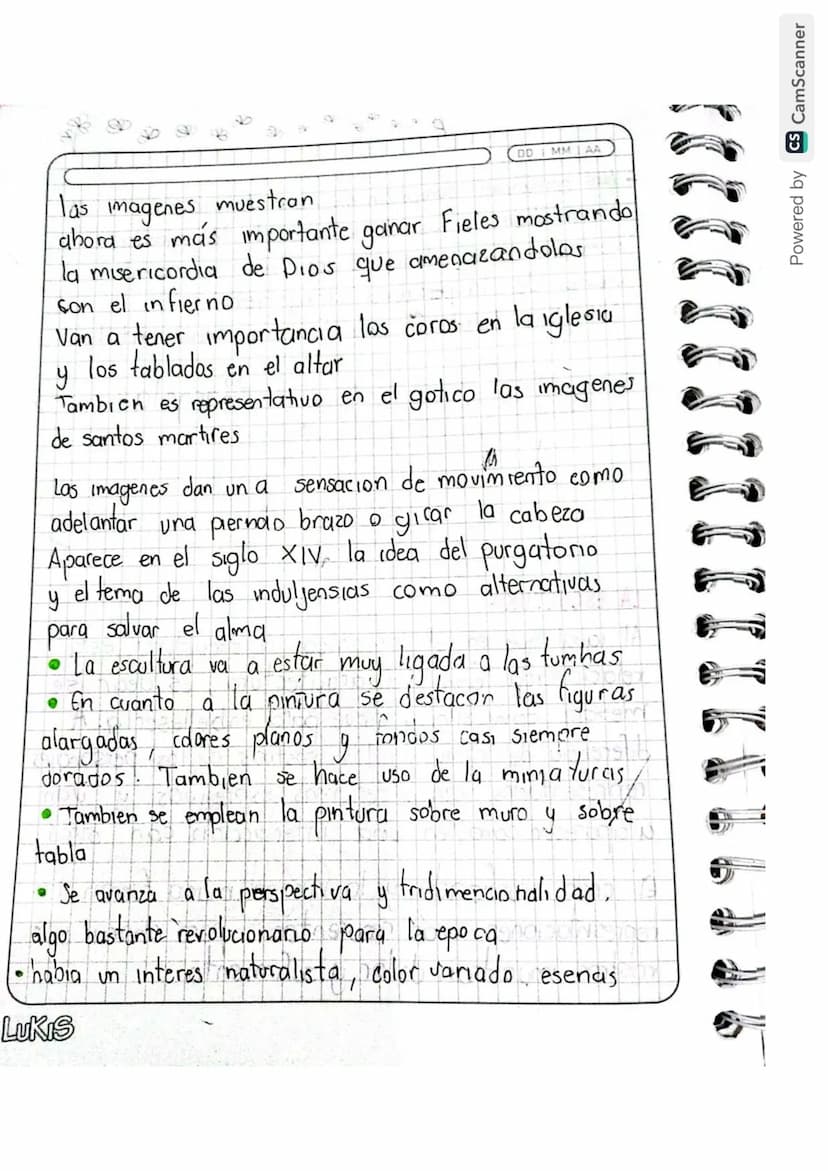 DD | MM | AA
las imagenes muestran
ahora es más importante ganar Fieles mostrando
la misericordia de Dios que amenazandolos
son el infierno
Van a tener importancia los coros en la iglesia
y los tablados en el altar
Tambien es representativo en el gotico las imàgenes
de santos martires
Las imagenes dan una sensacion de movimiento como
adelantar una pierndo brazo o girar la cabeza
Aparece en el siglo XIV, la idea del purgatorio
y el tema de las induljensias como alternativas
para salvar el alma
• La escultura va a estar muy ligada a las tumbas
• En cuanto a la pintura se destacan las figuras
alargadas, colores planos y fondos casi siempre
dorados. Tambien se hace uso de la miniaturas
• Tambien se emplean la pintura sobre muro y sobre
tabla
• Se avanza a la perspectiva y tridimencionalidad.
algo bastante revolucionario para la epoca
• habia un interes naturalista, color variado, esenas
LUKIS
Powered by CS CamScanner